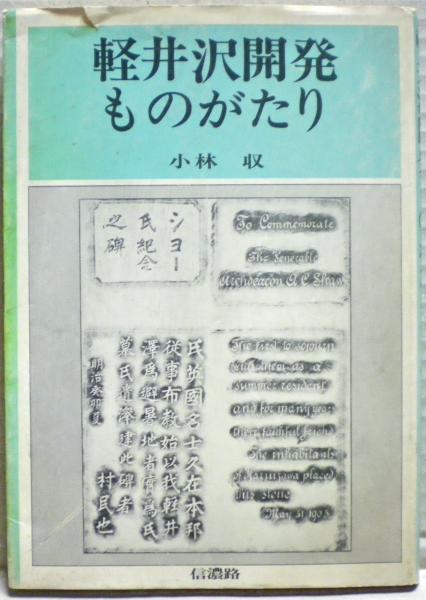 軽井沢開発
ものがたり
小林 収
ショー
氏紀念
之碑
To Commemorate
The Venerable
Archdeacon A C Shaw
氏英國名士久在本邦
從事布教始以我輕井
澤爲避暑地者實爲氏
慕氏遺澤建此碑者
明治癸卯夏 村民也
The first to sojourn
them as a
summer resident
and for many years
their faithful friend
The inhabitants
of Karuizawa placed
this stone
May 31 1903
信濃路